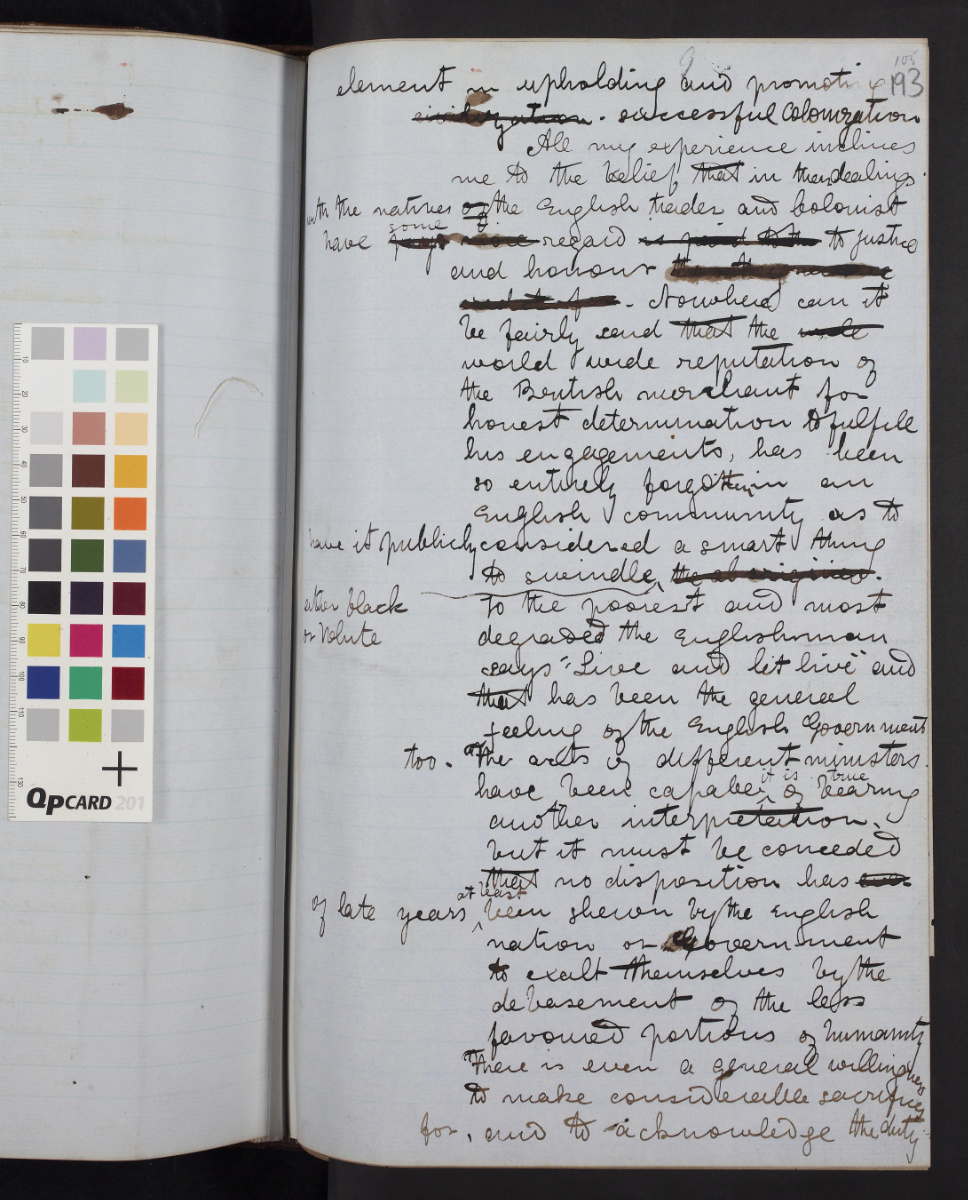 105
193
element in upholding and promoting
civilization. successful Colonization
All my experience inclines
me to the belief that in their dealings
with the natives of the English trader and Colonist
have some regard is paid to the to justice
and honour
. Nowhere can it
be fairly said that the
world wide reputation of
the British merchant for
honest determination to fulfill
his engagements, has been
so entirely forgotten in an
English community as to
have it publicly considered a smart thing
to swindle the aborigines.
either black
or White
To the poorest and most
degraded the Englishman
says "Live and let live" and
that has been the general
feeling of the English Government
too. The acts of different ministers
have been capable it is true of bearing
another interpretation,
but it must be conceded
that no disposition has
of late years at least been shewn by the English
nation or Government
to exalt themselves by the
debasement of the less
favoured portions of humanity
There is even a general willingness
to make considerable sacrifices
for, and to acknowledge the duty
QpCARD 201
10
20
30
40
50
60
70
80
90
100
110
130